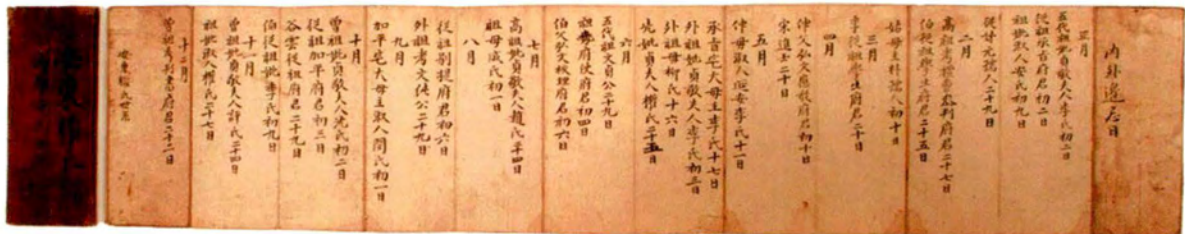 內外遠忌日
正月
五代祖妣貞敬夫人李氏初二日
從祖承旨府君初二日
祖妣淑人安氏初九日
從妹尤孺人二十九日
二月
高祖考禮曹參判府君二十七日
伯從祖學士府君二十五日
姑母主朴孺人初十日
三月
李從祖學士府君二十日
四月
仲父弘文應敎府君初十日
宋進士二十日
五月
仲母淑人延安李氏十一日
承旨宅大母主李氏十七日
外祖妣貞夫人李氏初三日
外祖母柳氏十六日
先妣貞夫人權氏二十五日
六月
五代祖文貞公二十九日
祖考府使府君初四日
伯父弘文校理府君初六日
七月
高祖妣貞敬夫人趙氏二十四日
祖母成氏初一日
八月
從祖別提府君初六日
外祖考文後公二十九日
九月
加平宅大母主淑人閔氏初一日
十月
曾祖妣貞敬夫人沈氏初二日
從祖加平府君初三日
谷雲從祖府君二十九日
伯從祖妣李氏初九日
十一月
曾祖妣貞敬夫人許氏二十四日
祖妣淑人權氏二十七日
十二月
曾祖考判書府君二十二日
安東權氏世系